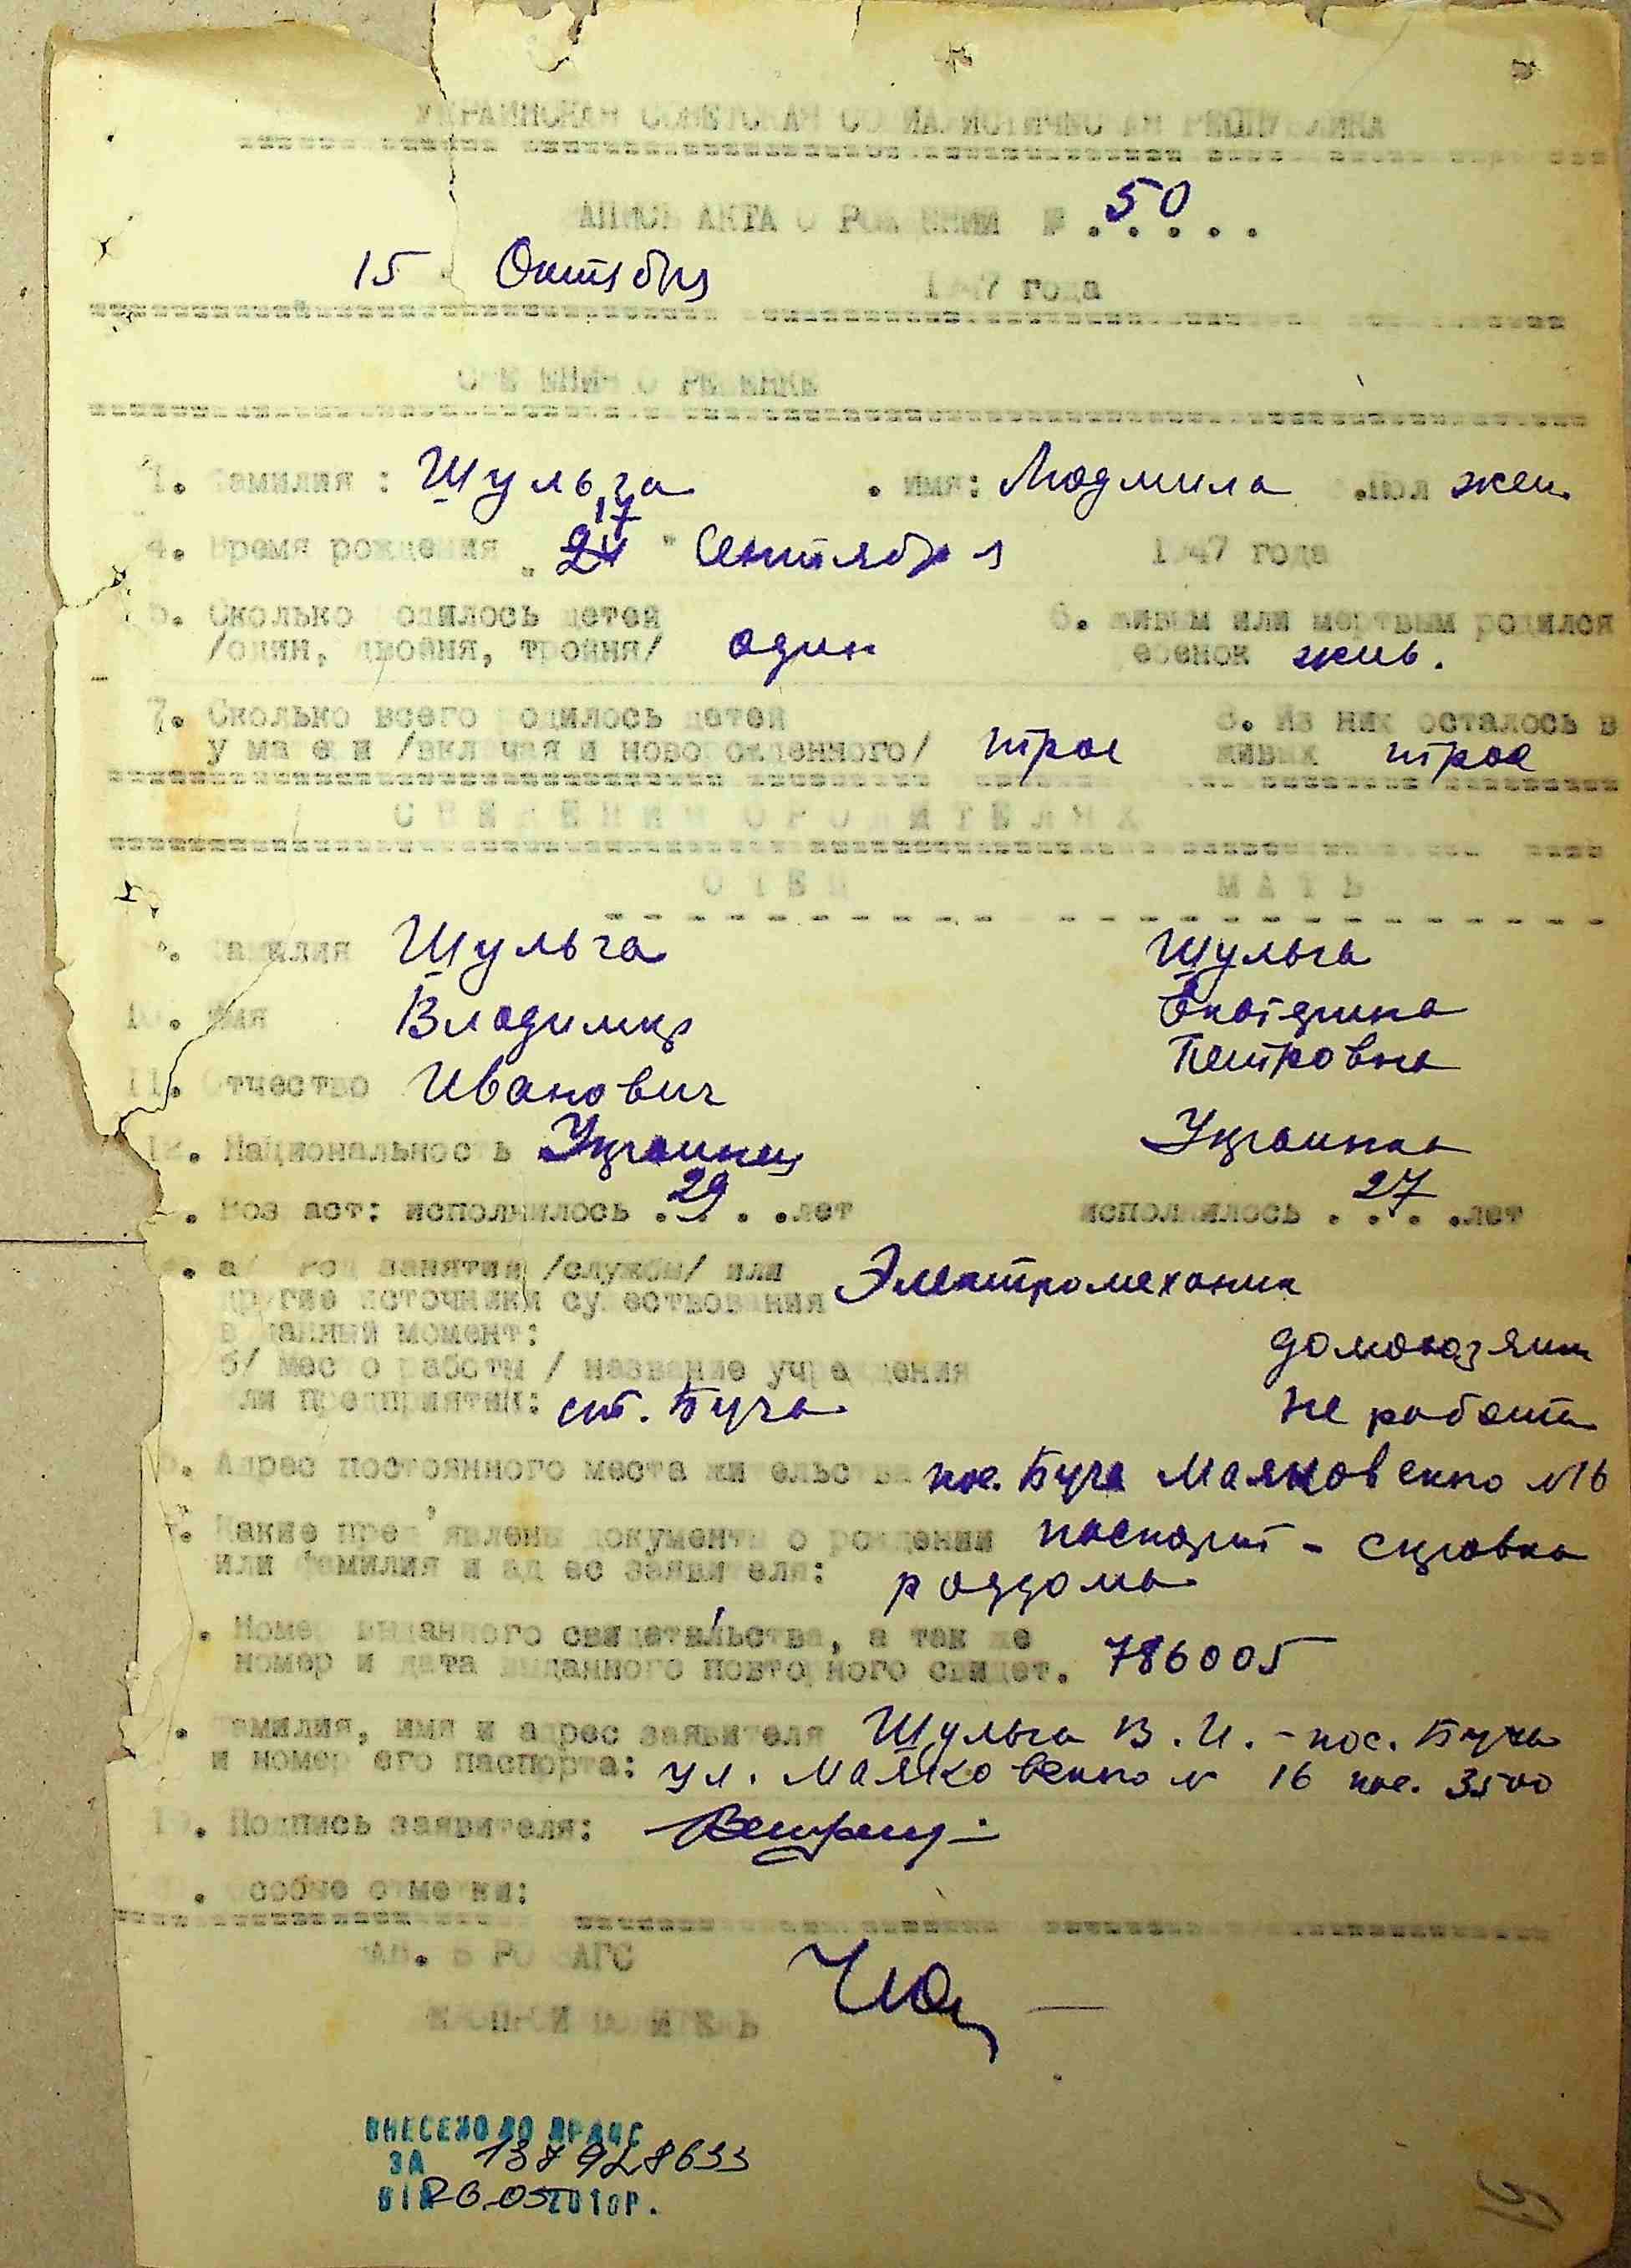 УКРАИНСКАЯ СОВЕТСКАЯ СОЦИАЛИСТИЧЕСКАЯ РЕСПУБЛИКА
ЗАПИСЬ АКТА О РОЖДЕНИИ № 50
15 Октября 1947 года
СВЕДЕНИЯ О РЕБЕНКЕ
1. Фамилия: Шульга . имя: Людмила .Пол жен.
4. Время рождения " 17 " Сентября 1947 года
5. Сколько родилось детей 6. живым или мертвым родился
/один, двойня, тройня/ один ребенок жив.
7. Сколько всего родилось детей 8. Из них осталось в
у матери /включая и новорожденного/ трое живых трое
СВЕДЕНИЯ О РОДИТЕЛЯХ
ОТЕЦ МАТЬ
9. Фамилия Шульга Шульга
10. Имя Владимир
11. Отчество Иванович Петровна
12. Национальность Украинец Украинка
. Возраст: исполнилось . 29 . .лет исполнилось . 27 . .лет
. а/ Род занятий /службы/ или Электромеханик
другие источники существования
в данный момент:
б/ место работы / название учреждения
или предприятия: ст. Буча не работ
. Адрес постоянного места жительства пос. Буча Маяковского №16
. Какие пред'явлены документы о рождении паспорт - справка
или фамилия и адрес заявителя: роддома
. Номер выданного свидетельства, а также
номер и дата выданного повторного свидет. 786005
. Фамилия, имя и адрес заявителя Шульга В. И. - пос. Буча
и номер его паспорта: ул. Маяковского № 16 3500
19. Подпись заявителя:
. Особые отметки:
ЗАВ. БЮРО ЗАГС
ДЕЛОПРОИЗВОДИТЕЛЬ
ВНЕСЕНО ДО ДРАЦС
ЗА 137928633
ВІД 26.05 2010Р.